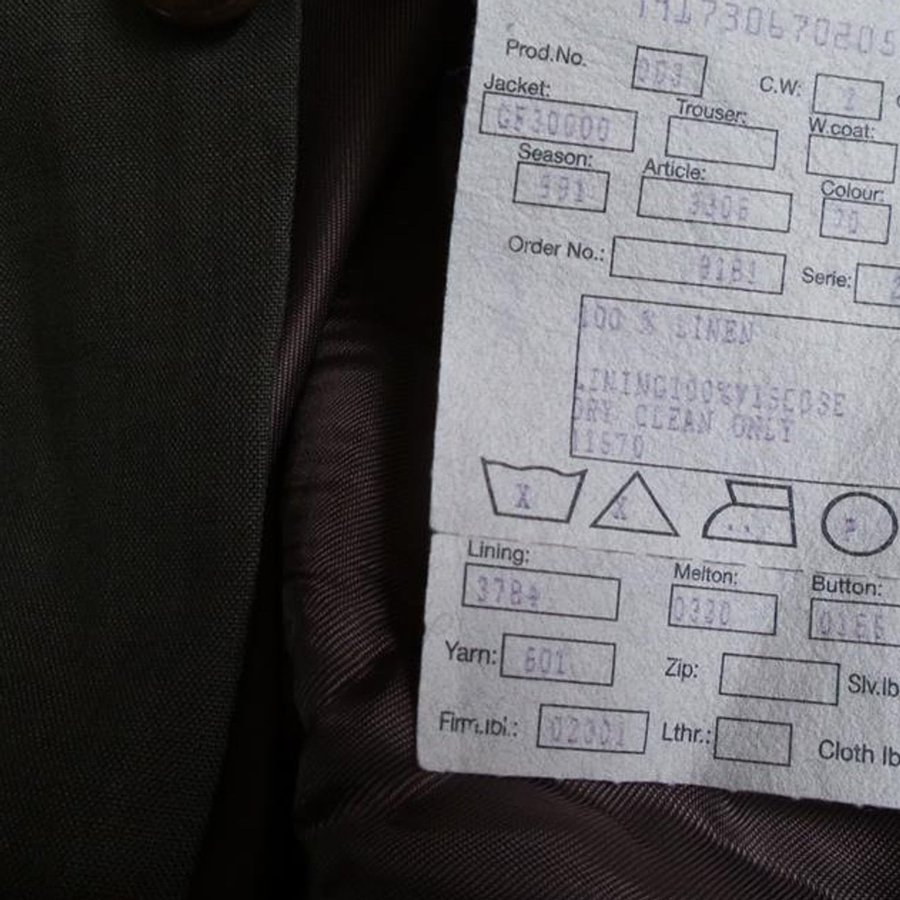 Prod.No. 003 C.W: 2
Jacket: GF30000 Trouser: W.coat:
Season: 991 Article: 3306 Colour: 70
Order No.: 8181 Serie: 2
100 % LINEN
LINING100%VISCOSE
DRY CLEAN ONLY
11570
X X ... P
Lining: 3784 Melton: 0330 Button: 0366
Yarn: 601 Zip: Slv.lb
Firm.lbl.: 02001 Lthr.: Cloth lb